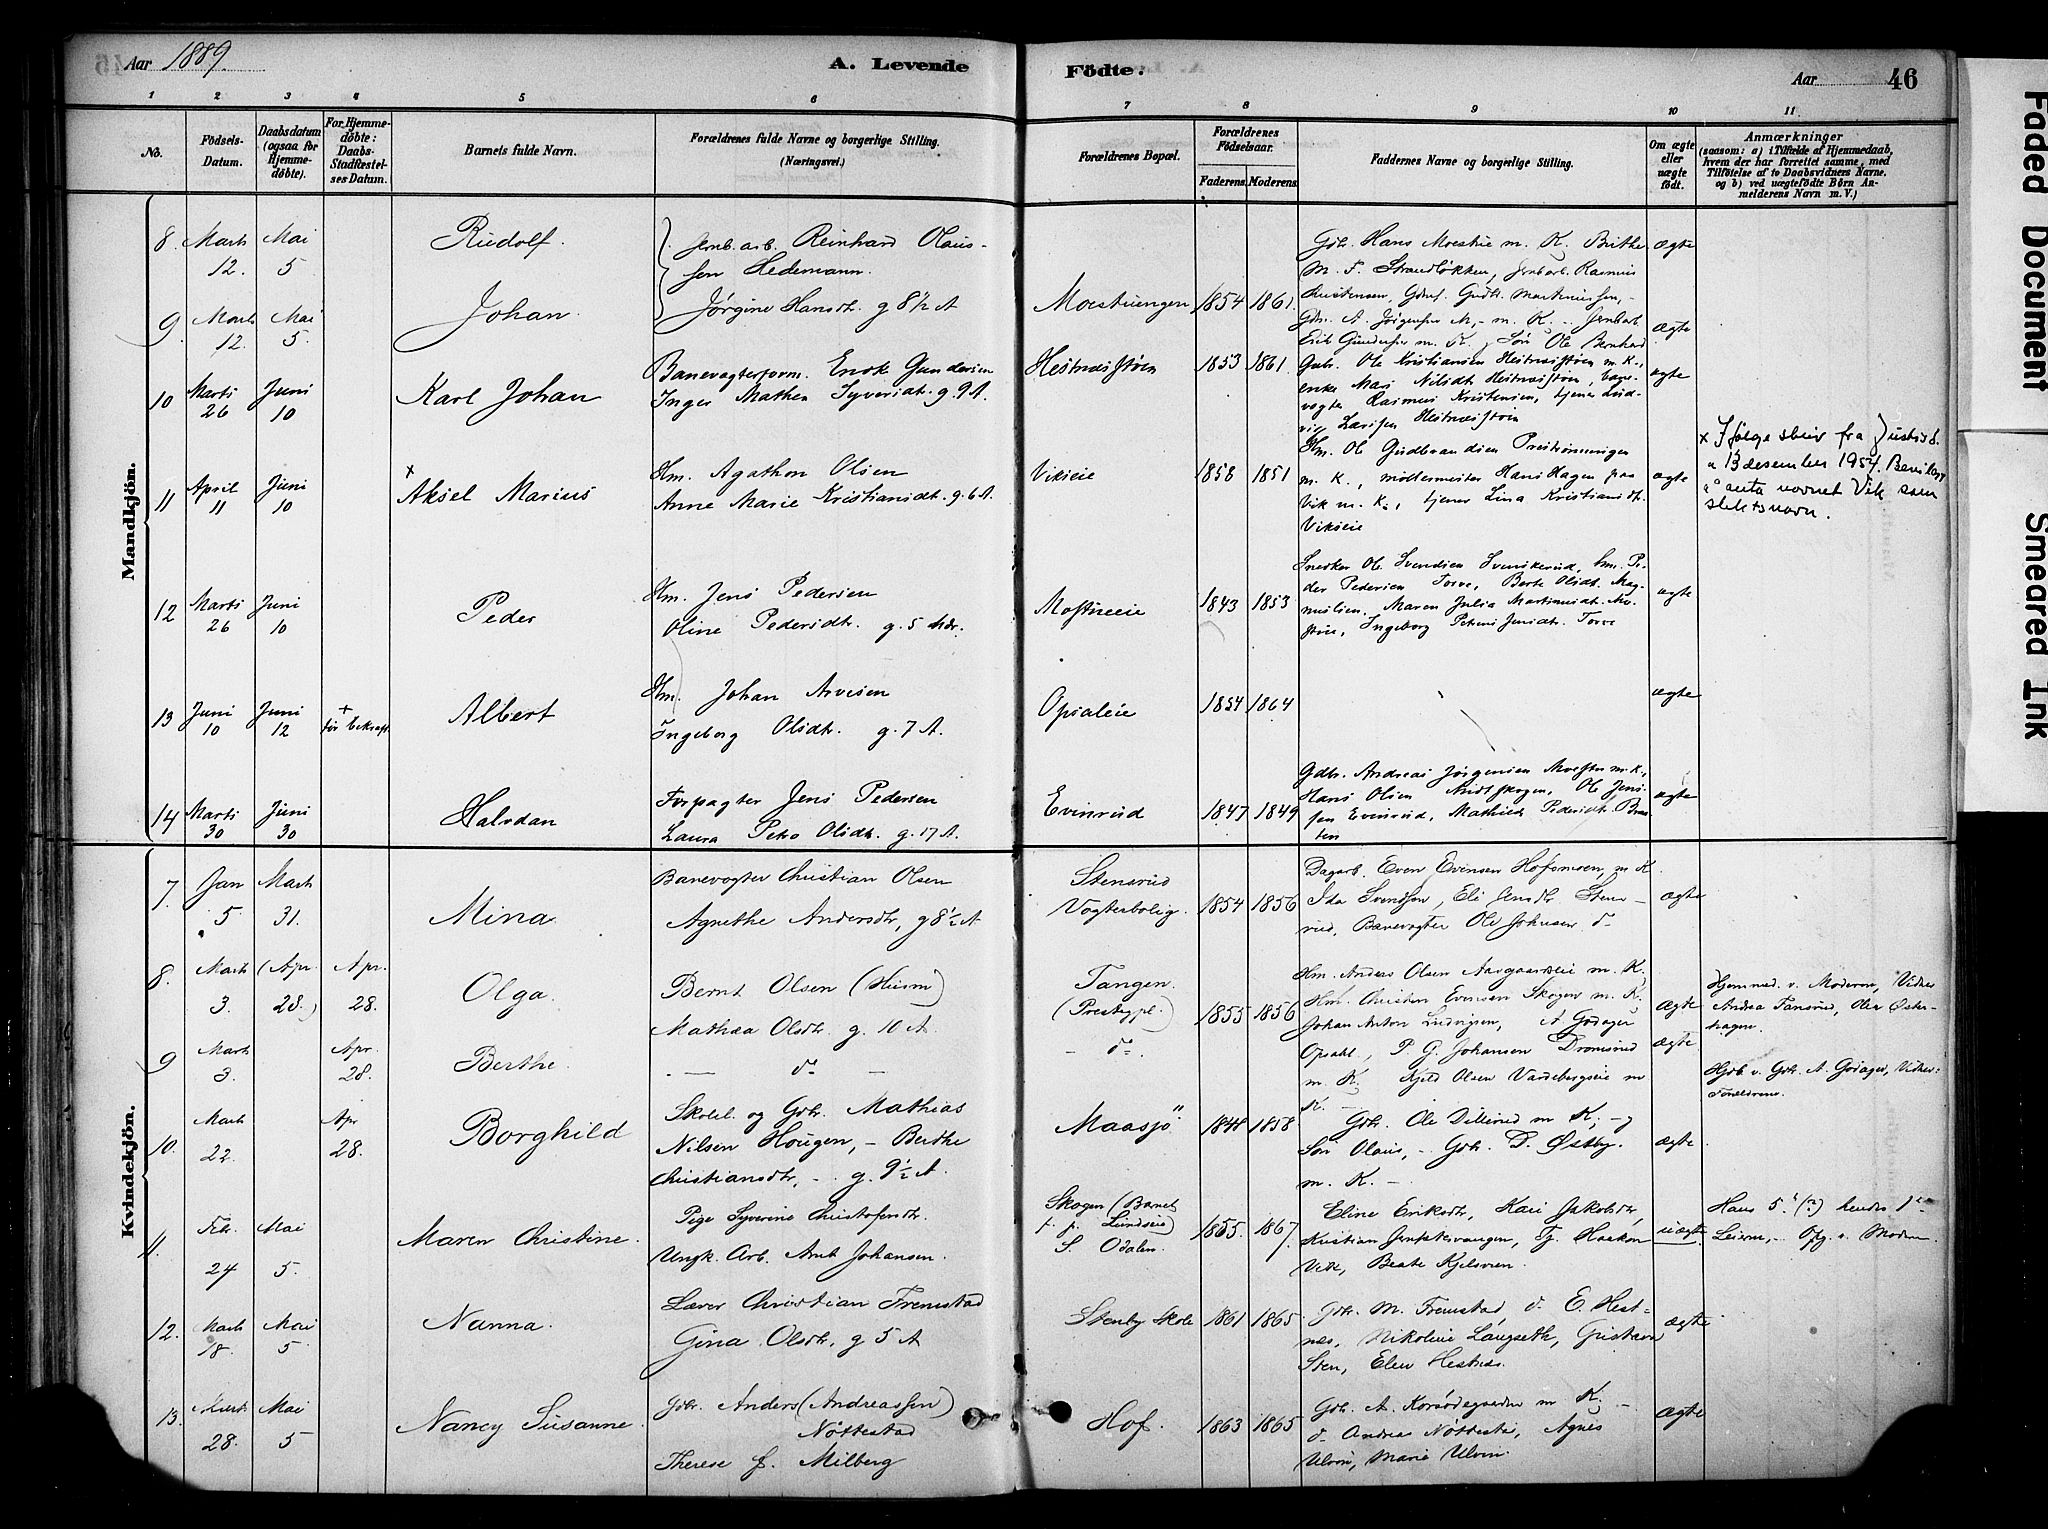 Aar 1889.
A. Levende
Födte.
Aar
46
1 2 3 4 5 6 7 8 9 10 11
No.
Födsels-
Datum.
Daabsdatum
(ogsaa for
Hjemme-
døbte).
For Hjemme-
døbte:
Daabs-
Stadfæstel-
ses Datum.
Barnets fulde Navn.
Forældrenes fulde Navne og borgerlige Stilling.
(Næringsvei.)
Forældrenes Bopæl.
Forældrenes
Födselsaar.
Faderens. Moderens.
Faddernes Navne og borgerlige Stilling.
Om ægte
eller
uægte
födt.
Anmærkninger
(saasom: a) i Tilfælde af Hjemmedaab,
hvem der har forrettet samme, med
Tilföielse af to Daabsvidners Navne.
og b) ved uægtefödte Börn An-
melderens Navn m. V.)
Mandkjön.
8. Marts 12. Mai 5
Rudolf.
Jernb.arb. Reinhard Olaus-
sen Hedemann.
Gdr. Hans Moestue m. K. Brithe
M. F. Strandløkken, Jernb.arb. Rasmus
Christensen,
ægte
9. Marts 12. Mai 5.
Johan.
Jørgine Hansdt. g 8½ A
Moestuengen 1854 1861.
Gdr. A. Jørgensen M, - m. K. - Jernbarb
Erik Gundersen m. K, Søn Ole Bernhard
ægte
10 Marts 26 Juni 10
Karl Johan
Banevogterform. Enok Gundersen
Inger Mathea Syversdt. g. 9 A.
Hestnæsstøen 1853 1861.
Gdr. Ole Kristiansen Hestnæsstøen m. K.,
enke Mari Nilsdt Hestnæsstøen, bane-
vogter Rasmus Kristensen, tjener Lud-
vig Larsen Hestnæsstøen
ægte
11 April 11 Juni 10
× Aksel Marius
Hm. Agathon Olsen
Anne Marie Kristiansdt. g. 6 A.
Vikseie 1858 1851
Hm. Ole Gudbrandsen
m. K., møllermester Hans Hagen paa
Vik m. K., tjener Lina Kristiansdt.
Vikseie
ægte
× Ifølge skriv fra Justisd.
13 desember 1954. Bevilget
å anta navnet Vik som
slektsnavn.
12 Marts 26 Juni 10
Peder
Hm. Jens Pedersen
Oline Pedersdtr. g. 5 Aar.
Mostueeie 1843 1853
Snedker Ole Svendsen Svenskerud, hm. Pe-
der Pedersen Torve, Berte Olsdt. Mag-
nuslien, Maren Julia Martinusdt. Mo-
stue, Ingeborg Petrine Jensdt. Torve
ægte
13 Juni 10 Juni 12 + før bekræft.
Albert
Hm. Johan Arvesen
Ingeborg Olsdtr. g. 7 A.
Opsaleie 1854 1864
ægte
14 Marts 30 Juni 30
Halvdan
Forpagter Jens Pedersen
Laura Petra Olsdt. g. 17 A.
Evinrud 1847 1849
Gdbr. Andreas Jørgensen Moestue m. K.,
Hans Olsen Ole Jens-
sen Evenrud, Mathilde Pedersdt.
ægte
Kvindekjön.
7. Jan 5 Marts 31.
Mina.
Banevogter Christian Olsen
Agnethe Andersdtr, g 8½ A
Stensrud
Vogterbolig. 1854 1856
Dagarb. Even Evensen Hofsmoen, m K
Ida Svendsen, Eli Jensdt Stens-
rud, Banevogter Ole Johnsen do
ægte
8. Marts 3. (Apr. 28.) Apr. 28.
Olga.
Bernt Olsen (Husm)
Mathea Olsdtr. g. 10 A
Tangen.
(Prestegpl.) 1855 1856
Hm. Andreas Olsen Aasgaardseie m. K.
Hm. Christen Evensen Skogen m. K.
Johan Anton Ludvigsen, A Godager
ægte
Hjemmed. v. Moderen, Vidner
Andrea Tansrud, Olea Øster-
hagen.
9 Marts 3. Apr. 28.
Berthe.
— do —
- do -
Opsahl, P. G. Johansen Dromsrud
m. K, Kjeld Olsen Vardebergseie m
K. -
ægte
Hjdb. v. Gdr. A. Godager, Vidner:
Forældrene.
10. Marts 22. Apr 28.
Borghild
Skolel. og Gdr. Mathias
Nilsen Hougen, - Berthe
Christiansdtr, - g. 9½ A.
Maasjø. 1848 1858
Gdr. Ole Dillerud m K; - og
Søn Olaus, - Gdr. D. Østby
m. K. -
ægte
11. Febr. 24 Mai 5.
Maren Christine.
Pige Syverine Christofersdtr.
Ungk. Arb. Arnt Johansen.
Skogen (Barnet
f. p. Lundseie)
S. Odalen. 1855. 1867.
Eline Eriksdtr, Kari Jakobsdtr,
Kristian Jernsætervangen, Tj. Haakon
Vik, Beate Kjelsvien.
uægte
Hans 5te (?) hendes 1ste
Leierm, - Opg. v. Moderen
12. Marts 18. Mai 5
Nanna.
Lærer Christian Fremstad
Gina Olsdtr, g 5 A
Stenby Skole 1861 1865
Gdr. M. Fremstad, d. E. Hest-
næs, Nikoline Langseth, Gustava
Sten, Elen Hestnæs.
ægte
13. Marts 28. Mai 5
Nancy Susanne.
Gdr. Anders (Andreassen)
Nøttestad
Therese f. Milberg
Hof. 1863 1865
Gdr. A. Korsødegaarden m K, -
do Andreas Nøttestad, Agnes
Ulvin, Marie Ulvin.
ægte
Faded Document
Smeared Ink